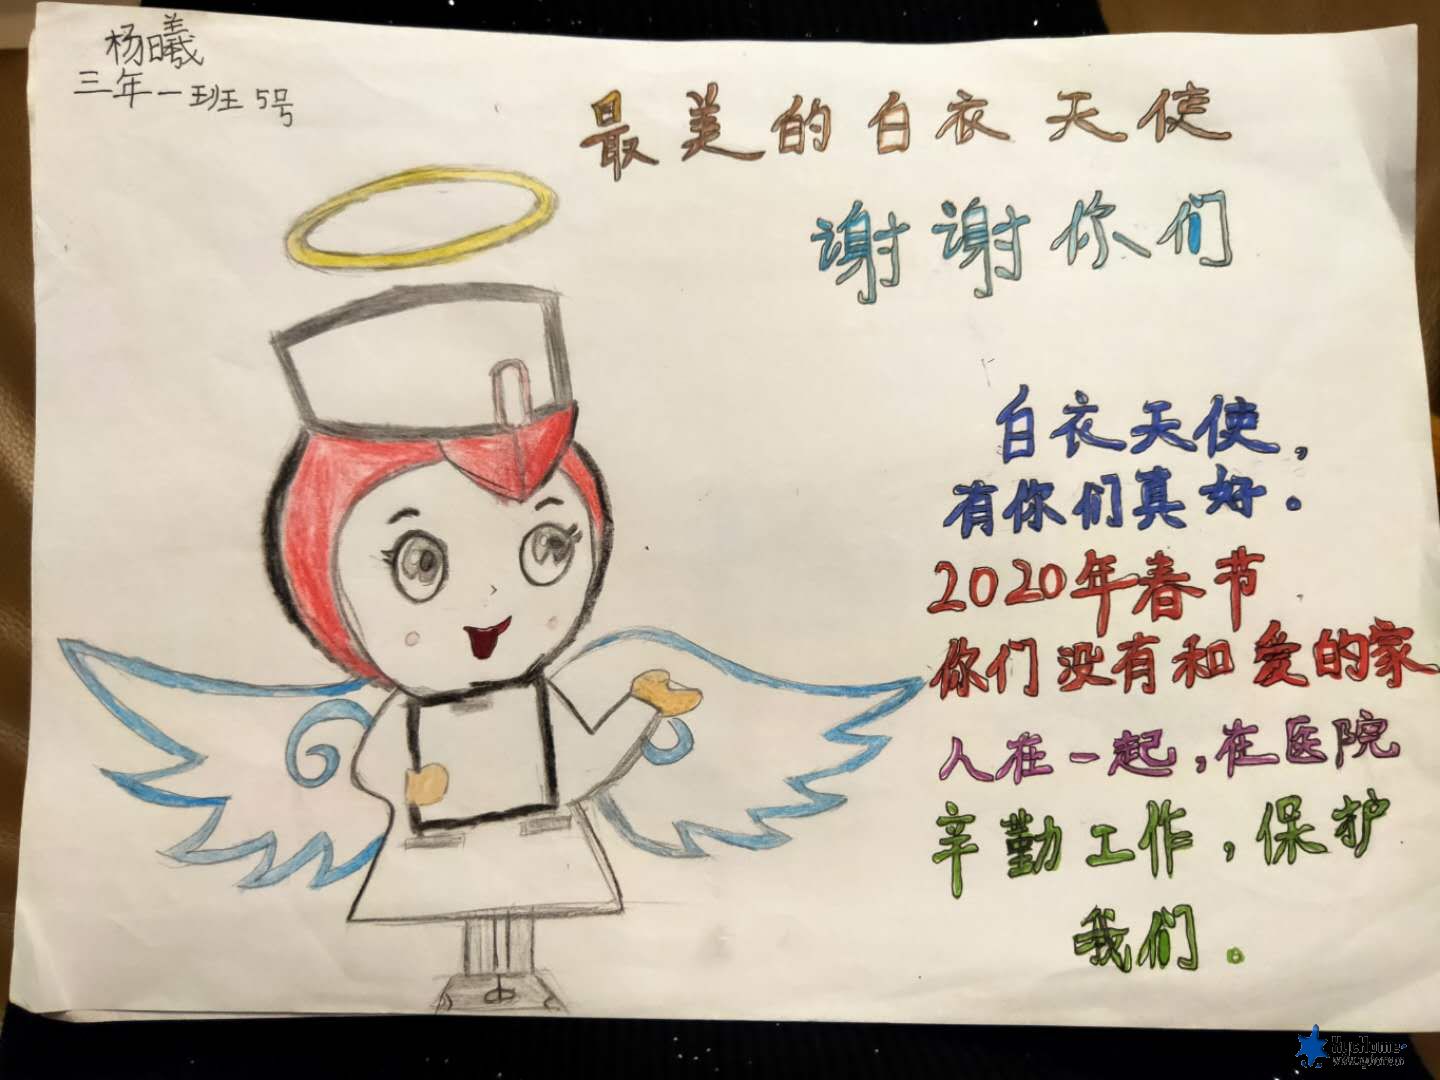 杨曦
三年一班5号
最美的白衣天使
谢谢你们
白衣天使，
有你们真好。
2020年春节
你们没有和爱的家
人在一起，在医院
辛勤工作，保护
我们。